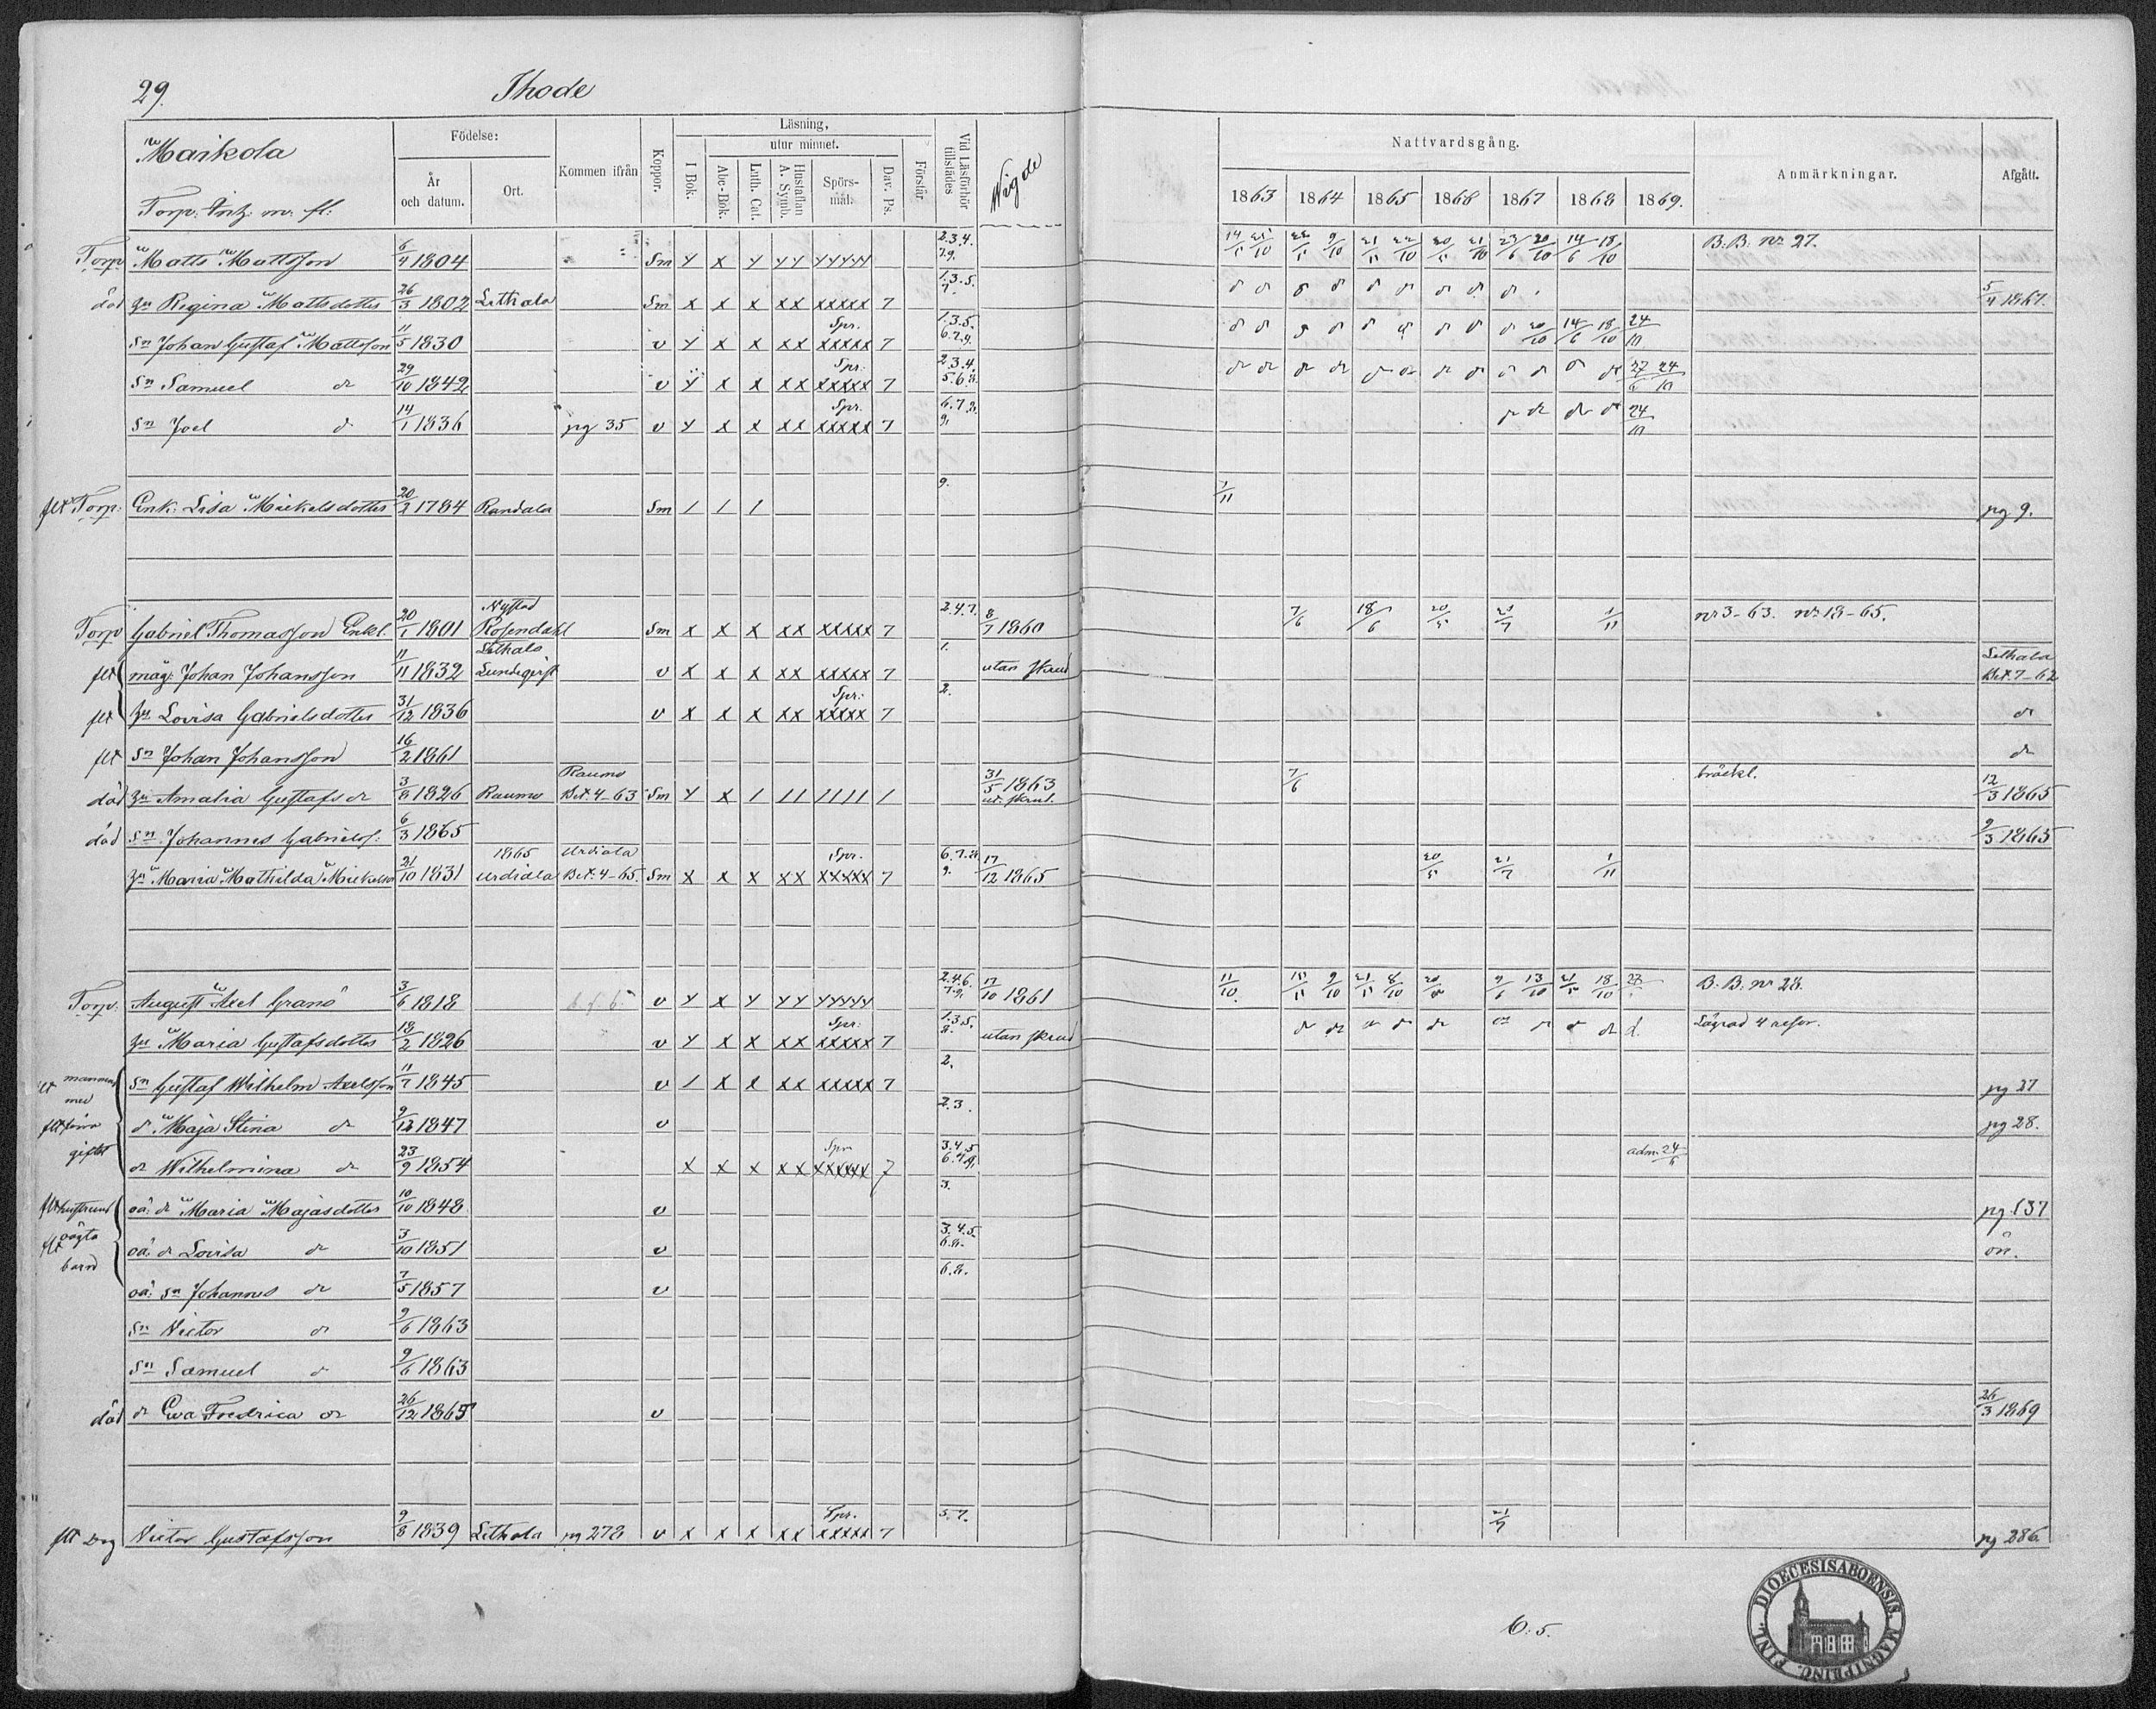 29. Ihode
Maikola
Torp: Intz: m. fl:
Födelse:
År och datum.
Ort.
Kommen ifrån
Koppor.
Läsning,
I Bok.
utur minnet.
Abc-Bok.
Luth. Cat.
Hustaflan A. Symb.
Spörsmål.
Dav. Ps.
Förstår.
Vid Läsförhör tillstädes
Wigde
Nattvardsgång.
1863 1864 1865 1866 1867 1868 1869.
Anmärkningar.
Afgått.
Torp Matts Mattsson 6/4 1804 Sm 2.3.4. 7.9. B.B. nr 27.
död hu Regina Mattsdotter 26/3 1802 Lethala Sm x x x xx xxxxx 7 1.3.5. 7. 5/4 1867.
sn Johan Gustaf Mattsson 11/5 1830 v x x xx Spr. xxxxx 7 1.3.5. 6.7.9. 20/10 14/6 18/10 24/10
sn Samuel dr 29/10 1842 v x x xx Spr. xxxxx 7 2.3.4. 5.6.8. 27/6 24/10
sn Joel dr 14/1 1836 pg 35 v x x xx Spr. xxxxx 7 6.7.8. 9. 24/10
flt Torp: Enk: Lisa Mickelsdotter 20/2 1784 Randala Sm / / / 9. 1/11 pg 9.
Torp Gabriel Thomasson Enkl. 20/1 1801 Nystad Rosendahl Sm x x x xx xxxxx 7 2.4.7. 8/7 1860 7/6 18/6 20/5 21/7 1/11 nr 3-63. nr 18-65.
flt måg: Johan Johansson 11/11 1832 Lethala Lundeqvist v x x x xx xxxxx 7 1. utan skrud Lethala Bet. 7-62
flt hu Lovisa Gabrielsdotter 31/12 1836 v x x x xx Spr: xxxxx 7 2. dr
flt sn Johan Johansson 16/2 1861 dr
död hu Amalia Gustafs dr 3/8 1826 Raumo Raumo Bet. 4-63 Sm x / // //// / 31/5 1863 ut. skrud. 7/6 bräckl. 12/3 1865
död sn Johannes Gabrielss: 6/3 1865 9/3 1865
hu Maria Mathilda Mickelsdr 21/10 1831 1865 Urdiala Urdiala Bet. 4-65. Sm x x x xx Spr. xxxxx 7 6.7.8. 9. 17/12 1865 20/5 21/7 1/11
Torp. August Axel Granö 3/6 1818 v 2.4.6. 7.9. 17/10 1861 11/10 9/10 8/10 9/6 13/10 18/10 B.B. nr 28.
hu Maria Gustafsdotter 18/2 1826 v x x xx Spr: xxxxx 7 1.3.5. 8. utan skrud Lägrad 4 resor.
flt mannens med förra giftet
sn Gustaf Wilhelm Axelsson 11/7 1845 v / x x xx xxxxx 7 2. pg 27
flt dr Maja Stina dr 9/12 1847 v 2.3. pg 28.
dr Wilhelmina dr 23/9 1854 x x x xx Spr xxxxx 7 3.4.5. adm. 24/6
flt hustruns oägta barn
oä: dr Maria Majasdotter 10/10 1848 v 3. pg. 137
flt oä. dr Lovisa dr 3/10 1851 v 3.4.5. 6.8. ön.
oä: sn Johannes dr 7/5 1857 v 6.8.
sn Victor dr 9/6 1863
sn Samuel dr 9/6 1863
död dr Ewa Fredrica dr 26/12 1865 v 26/3 1869
flt Dg Victor Gustafsson 9/8 1839 Lethala pg 278 v x x x xx Spr. xxxxx 7 5.7. 21/7 pg 286.
6:5.
FINL. DIOECESIS ABOENSIS. MAGNI PRINC.